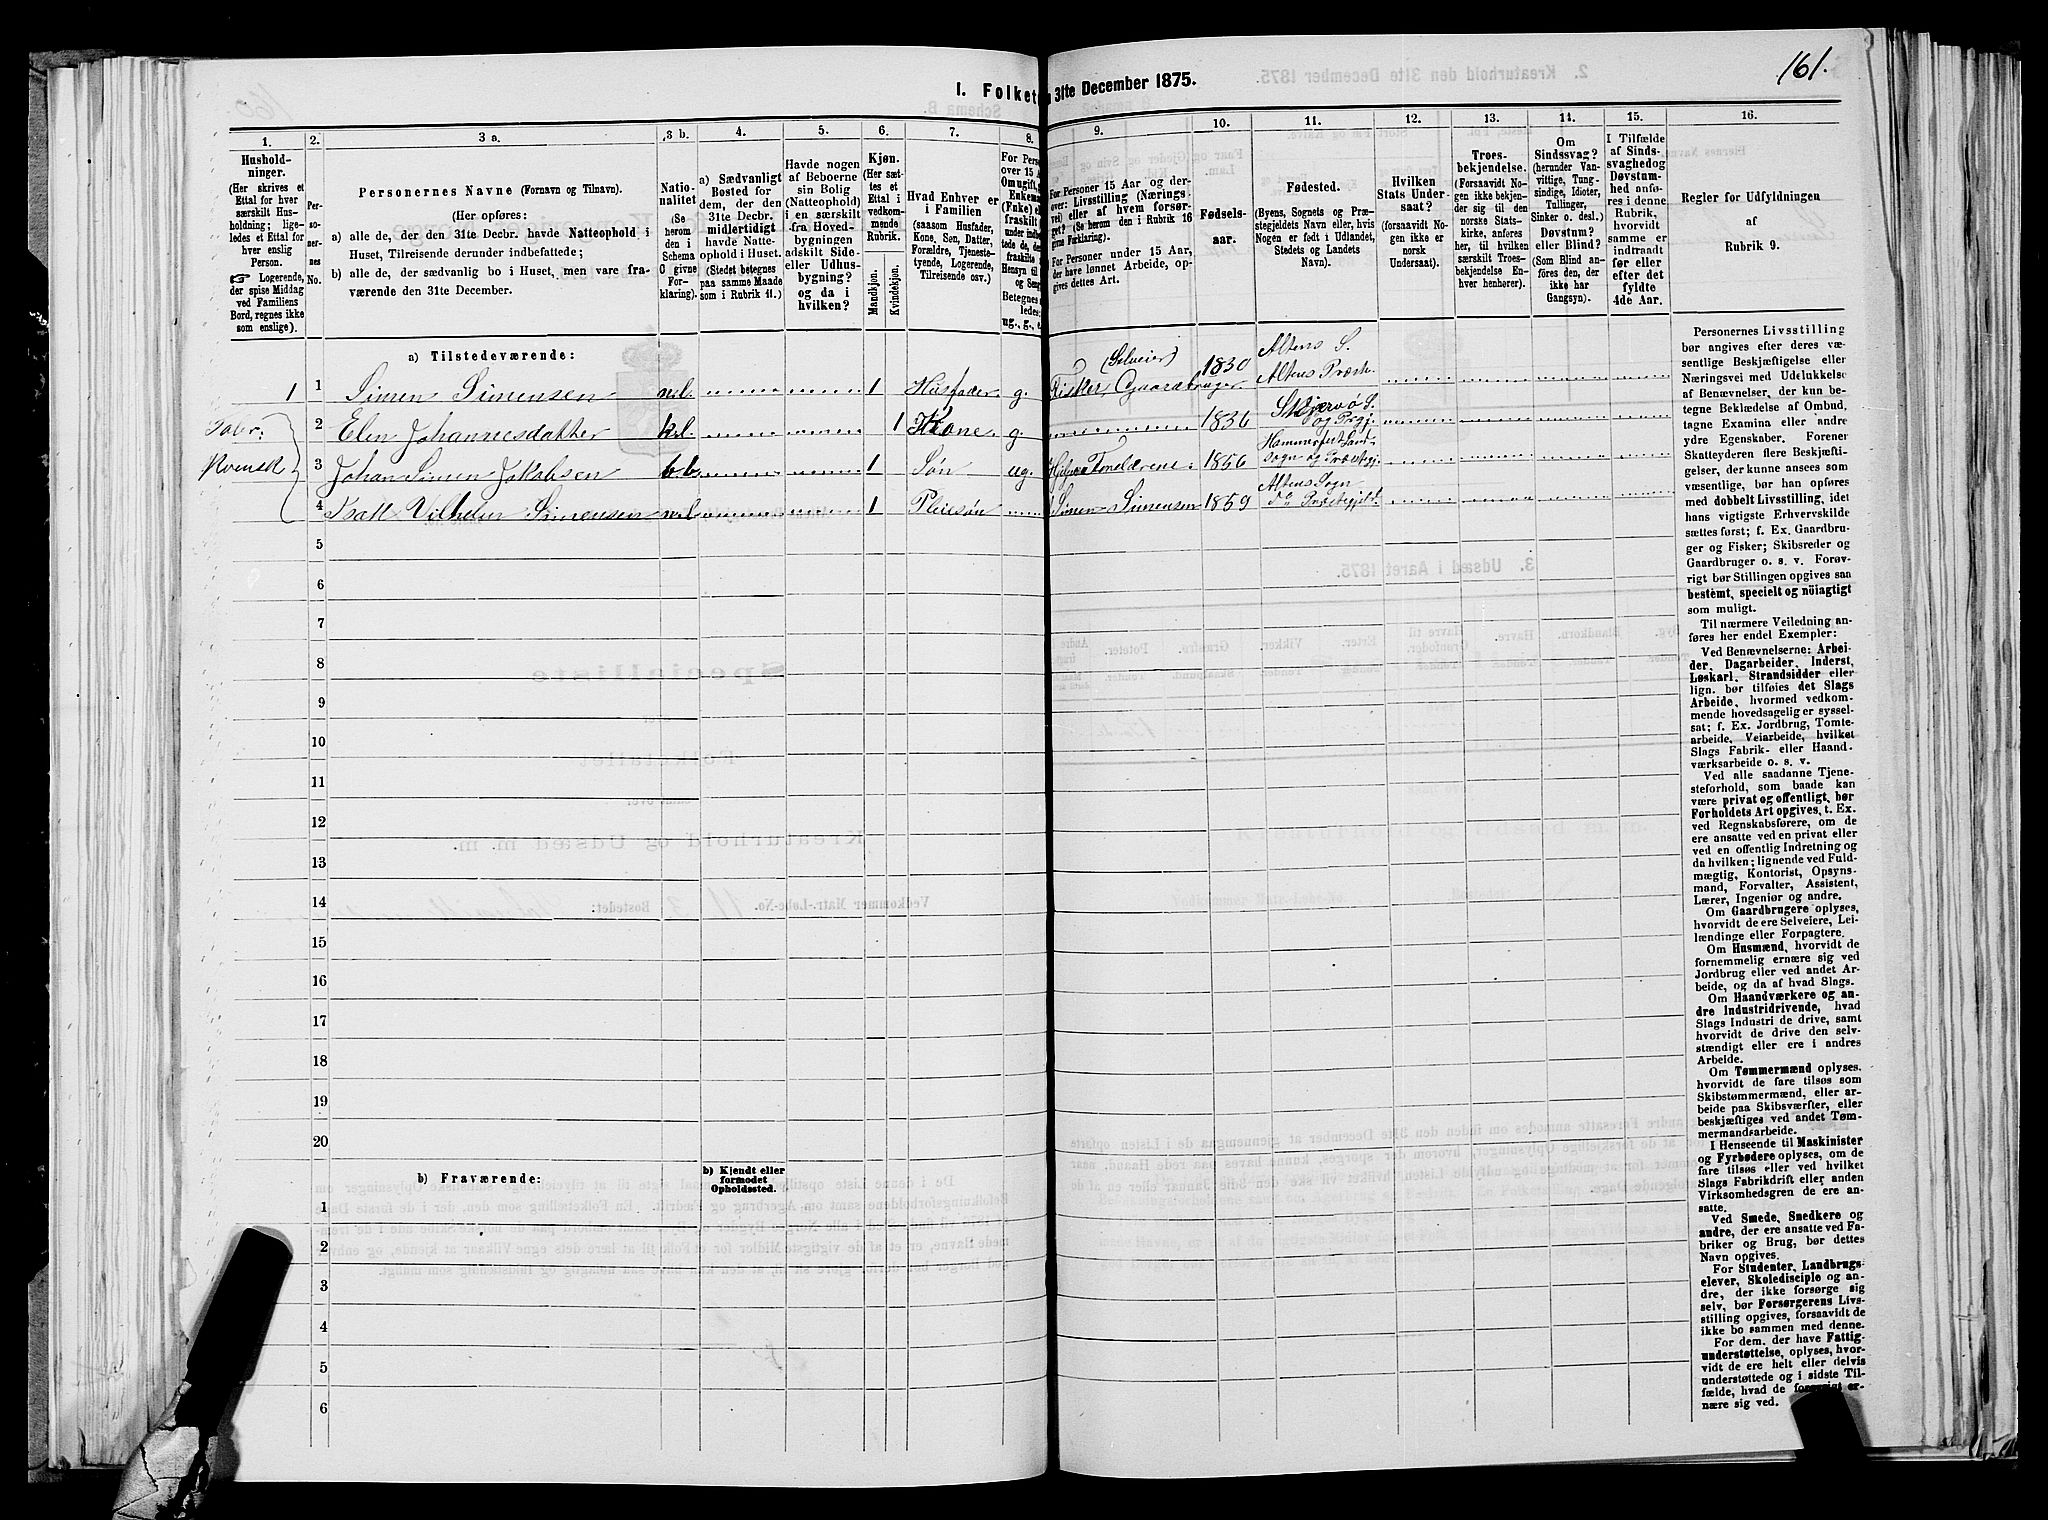 161.
I. Folket
31te December 1875.
1.
2.
3 a.
3 b.
4.
5.
6.
7.
8.
9.
10.
11.
12.
13.
14.
15.
16.
Hushold-
ninger.
(Her skrives et
Ettal for hver
særskilt Hus-
holdning; lige-
ledes et Ettal for
hver enslig
Person.
☞ Logerende,
der spise Middag
ved Familiens
Bord, regnes ikke
som enslige).
Per-
sone-
nes
No.
Personernes Navne (Fornavn og Tilnavn).
(Her opføres:
a) alle de, der den 31te Decbr. havde Natteophold i
Huset, Tilreisende derunder indbefattede;
b) alle de, der sædvanlig bo i Huset, men vare fra-
værende den 31te December.
Natio-
nalitet
(Se
herom
den i
Schema
C givne
For-
klaring).
a) Sædvanligt
Bosted for
dem, der den
31te Decbr.
midlertidigt
havde Natte-
ophold i Huset.
(Stedet betegnes
paa samme Maade
som i Rubrik 11.)
Havde nogen
af Beboerne
sin Bolig
(Natteophold)
i en særskilt
fra Hoved-
bygningen
adskilt Side-
eller Udhus-
bygning?
og da i
hvilken?
Kjøn.
(Her sæt-
tes et
Ettal i
vedkom-
mende
Rubrik.
Mandkjøn.
Kvindekjøn.
Hvad Enhver er
i Familien
(saasom Husfader,
Kone, Søn, Datter,
Forældre, Tjeneste-
tyende, Logerende,
Tilreisende osv.)
For Pers
over 15 A
Om ugift,
Enkema
(Enke) e
fraskilt
under ind
tede de,
fraskilte
Hensyn til
og Seng
Betegnes
ledes:
ug., g., e.
For Personer 15 Aar og der-
over: Livsstilling (Nærings-
vei) eller af hvem forsør-
get? (Se herom den i Rubrik 16
givne Forklaring).
For Personer under 15 Aar,
der have lønnet Arbeide, op-
gives dettes Art.
Fødsels-
aar.
Fødested.
(Byens, Sognets og Præ-
stegjeldets Navn eller, hvis
Nogen er født i Udlandet,
Stedets og Landets
Navn).
Hvilken
Stats Under-
saat?
(forsaavidt No-
gen ikke er
norsk
Undersaat).
Troes-
bekjendelse.
(Forsaavidt No-
gen ikke bekjen-
der sig til den
norske Stats-
kirke, anføres
her, til hvilken
særskilt Troes-
bekjendelse En-
hver henhører).
Om
Sindssvag?
(herunder Van-
vittige, Tung-
sindige, Idioter,
Tullinger,
Sinker o. desl.)
Døvstum?
eller Blind?
(Som Blind an-
føres den, der
ikke har
Gangsyn).
I Tilfælde
af Sinds-
svaghed og
Døvstum-
hed anfø-
res i denne
Rubrik,
hvorvidt
samme er
indtraadt
før eller
efter det
fyldte
4de Aar.
Regler for Udfyldningen
af
Rubrik 9.
a) Tilstedeværende:
1 1 Simen Simensen n.l. 1 Husfader g. Fisker, Gaardbruger (Selveier) 1830 Altens S. Altens Præst.
Taler:
Kvensk
2 Elen Johannesdatter k.l. 1 Kone g 1836 Skjervø S. og Prgj.
3 Johan Simen Jakobsen b.b. 1 Søn ug. Hjelper Forældrene. 1856 Hammerfest Land-
sogn og Præstegj.
4 Isak Vilhelm Simensen n.l. 1 Pleiesøn Simen Simensen 1859 Altens Sogn
do Præstegjeld.
5
6
7
8
9
10
11
12
13
14
15
16
17
18
19
20
b) Fraværende:
b) Kjendt eller
formodet
Opholdssted.
1
2
3
4
5
6
Personernes Livsstilling
bør angives efter deres væ-
sentlige Beskjæftigelse eller
Næringsvei med Udelukkelse
af Benævnelser, der kun be-
tegne Beklædelse af Ombud,
tagne Examina eller andre
ydre Egenskaber. Forener
Skatteyderen flere Beskjæfti-
gelser, der kunne ansees som
væsentlige, bør han opføres
med dobbelt Livsstilling, idet
hans vigtigste Erhvervskilde
sættes først; f. Ex. Gaardbru-
ger og Fisker; Skibsreder og
Gaardbruger o. s. v. Forøv-
rigt bør Stillingen opgives saa
bestemt, specielt og nöiagtigt
som muligt.
Til nærmere Veiledning an-
føres her endel Exempler:
Ved Benævnelserne: Arbei-
der, Dagarbeider, Inderst,
Løskarl, Strandsidder eller
lign. bør tilføies det Slags
Arbeide, hvormed vedkom-
mende hovedsagelig er syssel-
sat; f. Ex. Jordbrug, Tomte-
arbeide, Veiarbeide, hvilket
Slags Fabrik- eller Haand-
værksarbeide o. s. v.
Ved alle saadanne Tjene-
steforhold, som baade kan
være privat og offentligt, bør
Forholdets Art opgives, t. Ex.
ved Regnskabsførere, om de
ere ansatte ved en privat eller
ved en offentlig Indretning og
da hvilken; lignende ved Fuld-
mægtig, Kontorist, Opsyns-
mand, Forvalter, Assistent,
Lærer, Ingeniør og andre.
Om Gaardbrugere oplyses,
hvorvidt de ere Selveiere, Lei-
lændinge eller Forpagtere.
Om Husmænd, hvorvidt de
fornemmelig ernære sig ved
Jordbrug eller ved andet Ar-
beide, og da af hvad Slags.
Om Haandværkere og an-
dre Industridrivende, hvad
Slags Industri de drive, samt
hvorvidt de drive den selv-
stændigt eller ere i andres
Arbeide.
Om Tømmermænd oplyses,
hvorvidt de fare tilsøs som
Skibstømmermænd, eller ar-
beide paa Skibsværfter, eller
beskjæftiges ved andet Tøm-
mermandsarbeide.
I Henseende til Maskinister
og Fyrbødere oplyses, om de
fare tilsøs eller ved hvilket
Slags Fabrikdrift eller anden
Virksomhedsgren de ere an-
satte.
Ved Smede, Snedkere og
andre, der ere ansatte ved Fa-
briker og Brug, bør dettes
Navn opgives.
For Studenter, Landbrugs-
elever, Skoledisciple og an-
dre, der ikke forsørge sig
selv, bør Forsørgerens Livs-
stilling opgives, forsaavidt de
ikke bo sammen med denne.
For dem, der have Fattig-
understøttelse, oplyses, hvor-
vidt de ere helt eller delvis
understøttede og i sidste Til-
fælde, hvad de forøvrigt er-
nære sig ved.